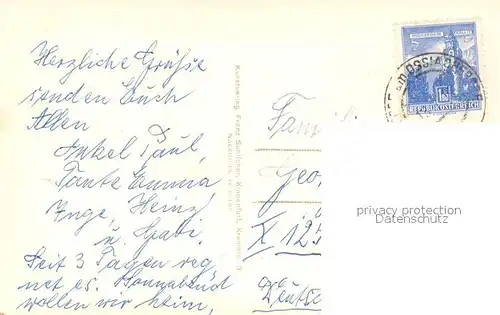 Herzliche Grüße
senden Euch
Allen
Onkel Paul,
Tante Emma
Inge, Heinz
u. Gabi.
Seit 3 Tagen reg
net es. Sonnabend
wollen wir heim,
Kunstverlag Franz Schilcher, Klagenfurt,
S
REPUBLIK ÖSTERREICH
OSSIACH
Fam
Geo
X 125
Deutsc
privacy protection
Datenschutz